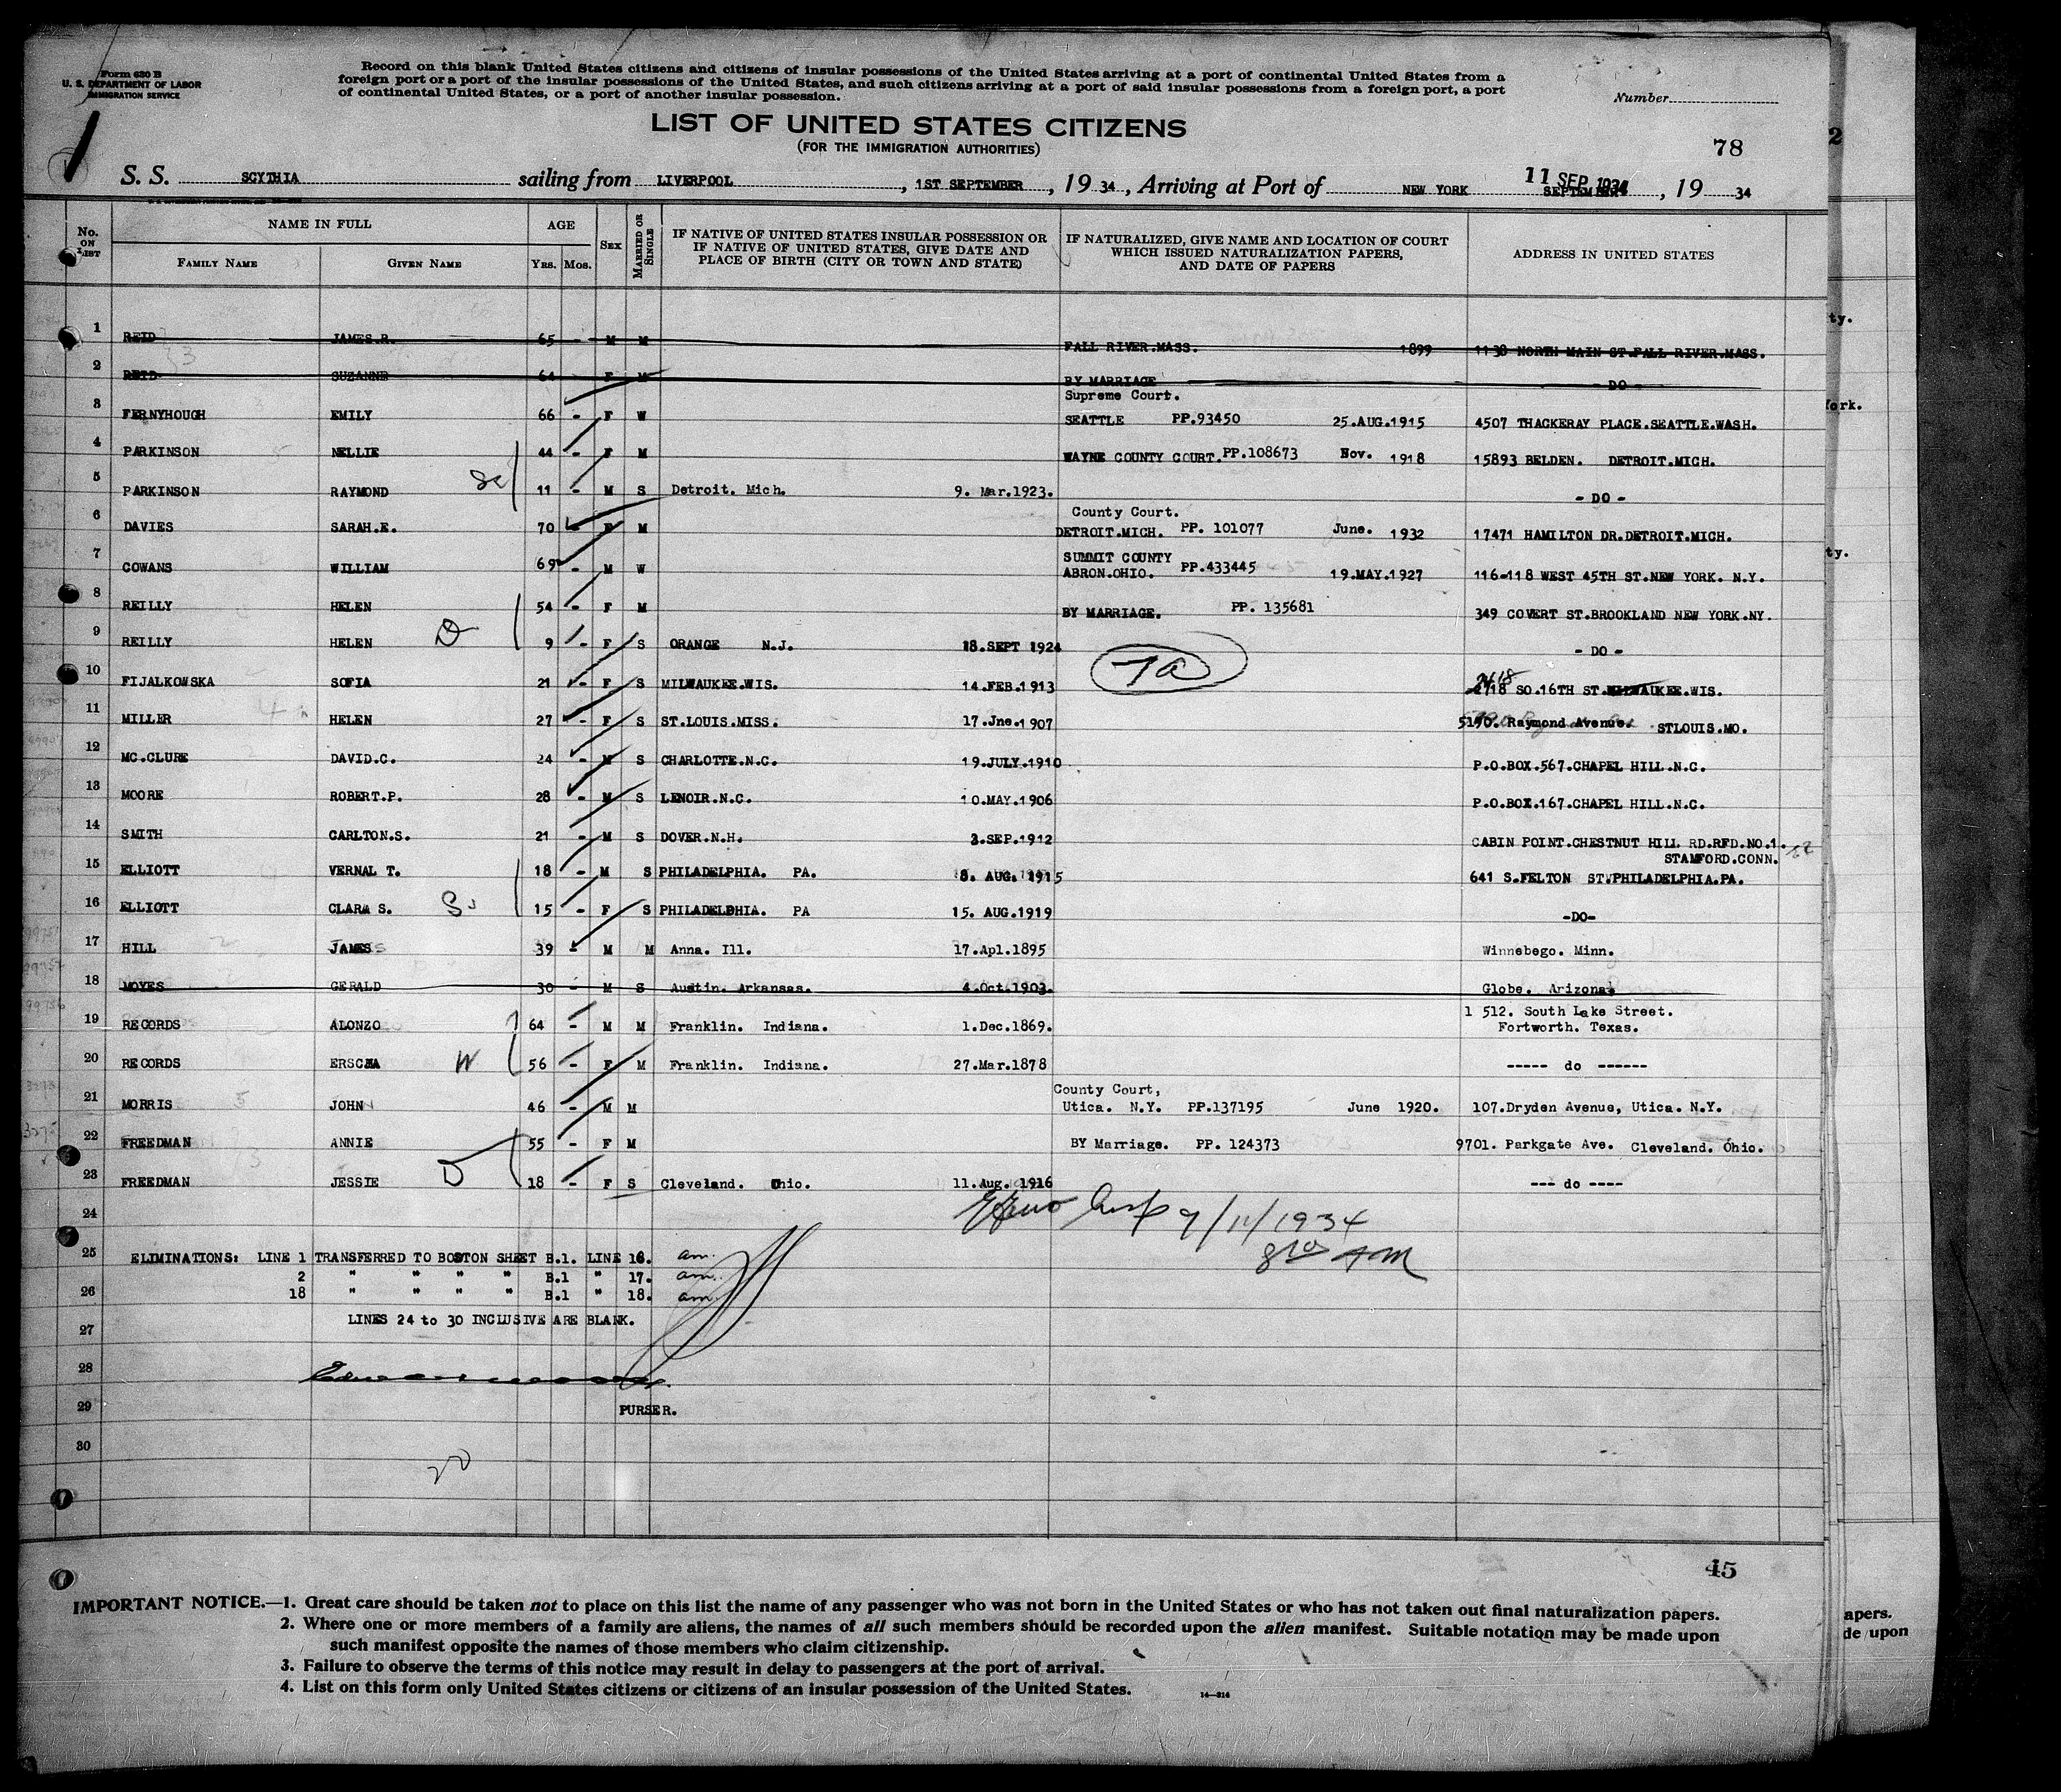 Form 630 B
U. S. DEPARTMENT OF LABOR
IMMIGRATION SERVICE
Record on this blank United States citizens and citizens of insular possessions of the United States arriving at a port of continental United States from a
foreign port or a port of the insular possessions of the United States, and such citizens arriving at a port of said insular possessions from a foreign port, a port
of continental United States, or a port of another insular possession.
Number
LIST OF UNITED STATES CITIZENS
(FOR THE IMMIGRATION AUTHORITIES)
78
2
S. S. SCYTHIA sailing from LIVERPOOL, 1ST SEPTEMBER, 19 34, Arriving at Port of NEW YORK 11 SEP 1934 SEPTEMBER, 19 34
No. ON LIST
NAME IN FULL
FAMILY NAME GIVEN NAME
AGE
YRS. MOS.
SEX
MARRIED OR SINGLE
IF NATIVE OF UNITED STATES INSULAR POSSESSION OR
IF NATIVE OF UNITED STATES, GIVE DATE AND
PLACE OF BIRTH (CITY OR TOWN AND STATE)
IF NATURALIZED, GIVE NAME AND LOCATION OF COURT
WHICH ISSUED NATURALIZATION PAPERS,
AND DATE OF PAPERS
ADDRESS IN UNITED STATES
1 REID JAMES.R. 65 - M M FALL RIVER.MASS. 1899 1138 NORTH MAIN ST.FALL RIVER.MASS.
2 REID SUZANNE 64 - F M BY MARRIAGE - DO -
Supreme Court.
3 FERNYHOUGH EMILY 66 - F W SEATTLE PP.93450 25.AUG.1915 4507 THACKERAY PLACE.SEATTLE.WASH.
4 PARKINSON NELLIE 44 - F M WAYNE COUNTY COURT.PP.108673 Nov. 1918 15893 BELDEN. DETROIT.MICH.
5 PARKINSON RAYMOND 11 - M S Detroit. Mich. 9. Mar.1923. - DO -
County Court.
6 DAVIES SARAH.E. 70 - F M DETROIT.MICH. PP. 101077 June. 1932 17471 HAMILTON DR.DETROIT.MICH.
SUMMIT COUNTY
7 COWANS WILLIAM 69 - M W ABRON.OHIO. PP.433445 19.MAY.1927 116-118 WEST 45TH ST.NEW YORK. N.Y.
8 REILLY HELEN 54 - F M BY MARRIAGE. PP. 135681 349 COVERT ST.BROOKLAND NEW YORK.NY.
9 REILLY HELEN D 9 - F S ORANGE N.J. 18.SEPT 1924 - DO -
10 FIJALKOWSKA SOFIA 21 - F S MILWAUKEE.WIS. 14.FEB.1913 2418 2718 SO.16TH ST.MILWAUKEE.WIS.
11 MILLER HELEN 27 - F S ST.LOUIS.MISS. 17.Jne.1907 5170. Raymond Avenue. STLOUIS.MO.
12 MC.CLURE DAVID.C. 24 - M S CHARLOTTE.N.C. 19.JULY.1910 P.O.BOX.567.CHAPEL HILL.N.C.
13 MOORE ROBERT.P. 28 - M S LENOIR.N.C. 10.MAY.1906 P.O.BOX.167.CHAPEL HILL.N.C.
14 SMITH CARLTON.S. 21 - M S DOVER.N.H. 3.SEP.1912 CABIN POINT.CHESTNUT HILL RD.RFD.NO.1.
STAMFORD.CONN.
15 ELLIOTT VERNAL T. 18 - M S PHILADELPHIA. PA. 8. AUG. 1915 641 S.FELTON ST.PHILADELPHIA.PA.
16 ELLIOTT CLARA S. 15 - F S PHILADELPHIA. PA 15. AUG.1919 -DO-
17 HILL JAMES 39 - M M Anna. Ill. 17.Apl.1895 Winnebego. Minn.
18 MOYES GERALD 30 - M S Austin. Arkansas. 4.Oct.1903. Globe. Arizona.
1 512. South Lake Street.
19 RECORDS ALONZO 64 - M M Franklin. Indiana. 1.Dec.1869. Fortworth. Texas.
20 RECORDS W 56 - F M Franklin. Indiana. 27.Mar.1878 ----- do ------
County Court,
21 MORRIS JOHN 46 - M M Utica. N.Y. PP.137195 June 1920. 107.Dryden Avenue, Utica. N.Y.
22 FREEDMAN ANNIE 55 - F M BY Marriage. PP. 124373 9701. Parkgate Ave. Cleveland. Ohio.
23 FREEDMAN JESSIE D 18 - F S Cleveland. Ohio. 11.Aug. 1916 --- do ----
24
9/11/1934
AM
25 ELIMINATIONS: LINE 1 TRANSFERRED TO BOSTON SHEET B.1. LINE 16. am.
2 " " " " B.1 " 17. am.
26 18 " " " " B.1 " 18. am.
LINES 24 to 30 INCLUSIVE ARE BLANK.
27
28
29 PURSER.
30
20
45
IMPORTANT NOTICE.—1. Great care should be taken not to place on this list the name of any passenger who was not born in the United States or who has not taken out final naturalization papers.
2. Where one or more members of a family are aliens, the names of all such members should be recorded upon the alien manifest. Suitable notation may be made upon
such manifest opposite the names of those members who claim citizenship.
3. Failure to observe the terms of this notice may result in delay to passengers at the port of arrival.
4. List on this form only United States citizens or citizens of an insular possession of the United States.
14—214
ty.
York.
ty.
apers.
de upon